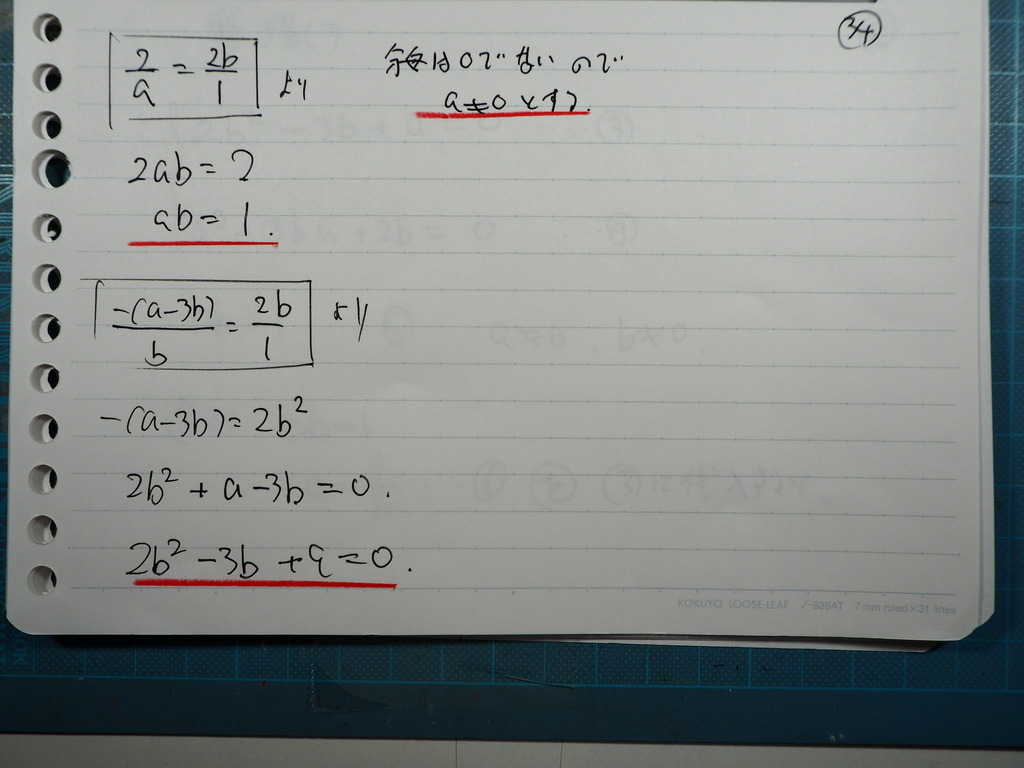 2/4
2/a = 2b/1 より 分母は0でないので
a≠0とする.
2ab = 2
ab = 1.
-(a-3b)/b = 2b/1 より
-(a-3b) = 2b²
2b² + a - 3b = 0.
2b² - 3b + a = 0.
KOKUYO LOOSE-LEAF ノ-836AT 7 mm ruled×31 lines